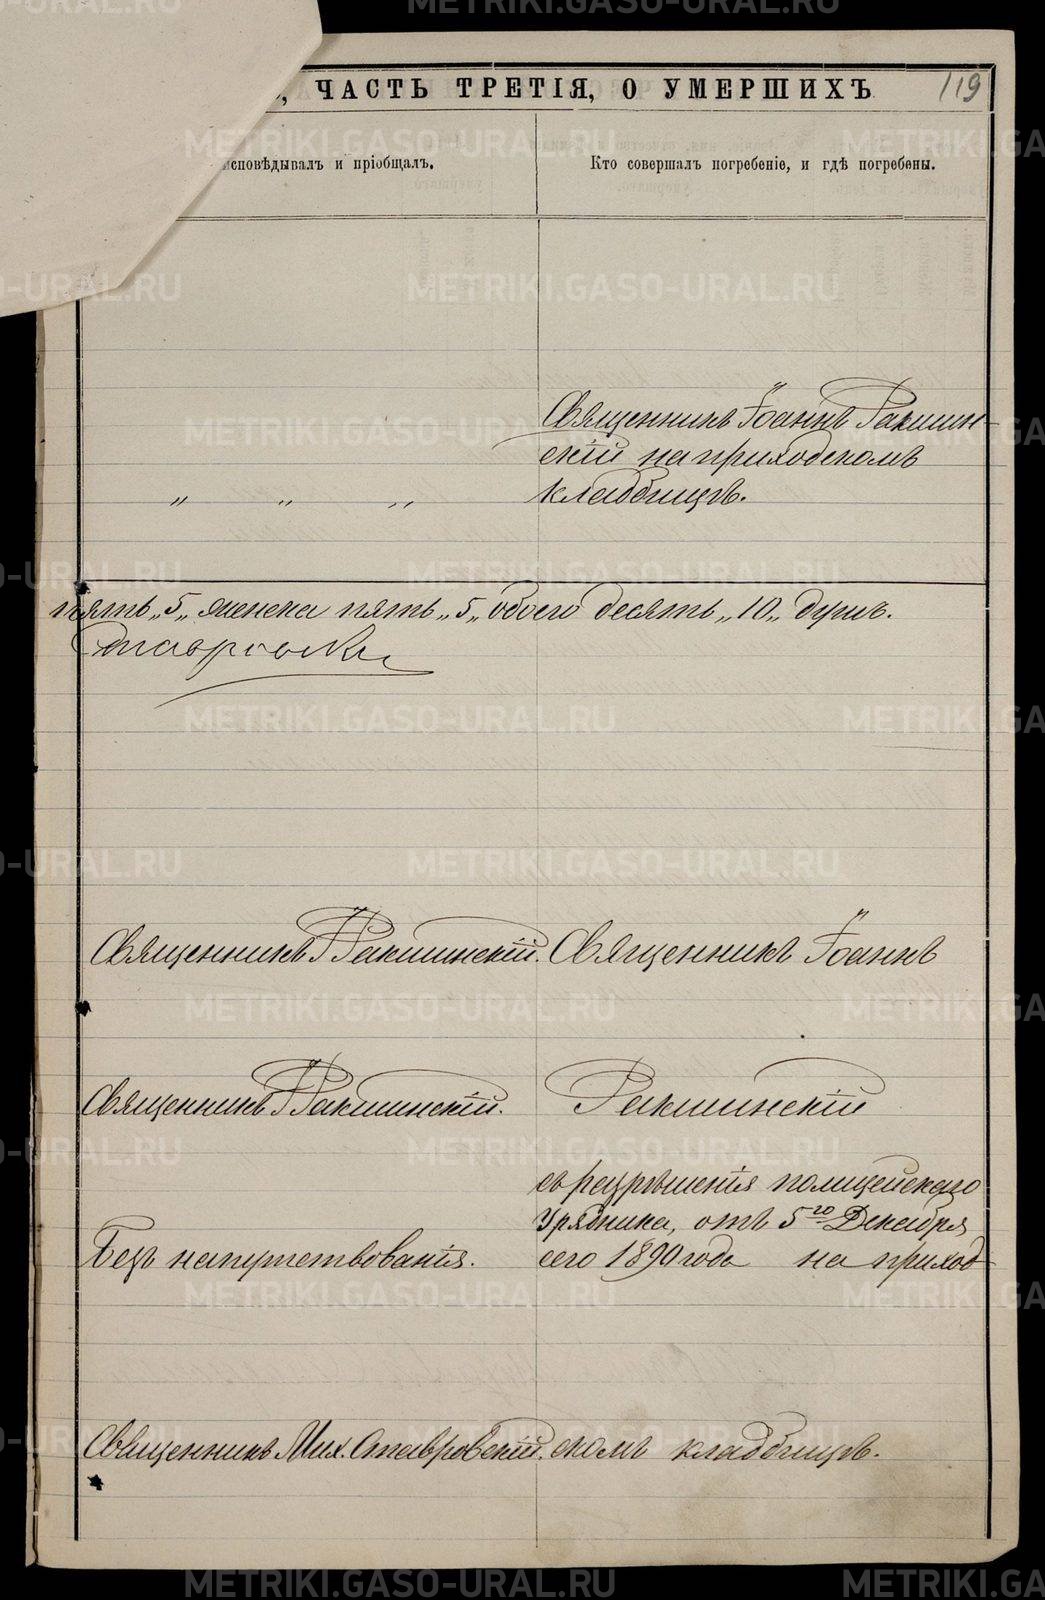 , ЧАСТЬ ТРЕТІЯ, О УМЕРШИХЪ
119
исповѣдывалъ и пріобщалъ.
Кто совершалъ погребеніе, и гдѣ погребены.
Священникъ Іоаннъ Ракшин-
скій на приходскомъ
„ „ „ кладбищѣ.
пять „5„ женска пять „5„ обоего десять „10„ душъ.
Священникъ І Ракшинскій. Священникъ Іоаннъ
Священникъ І Ракшинскій. Ракшинскій
съ разрѣшенія полицейскаго
Урядника, отъ 5го Декабря
Безъ напутствованія. сего 1890 года на приход-
Священникъ Мих. Ставровскій. скомъ кладбищѣ.
METRIKI.GASO-URAL.RU